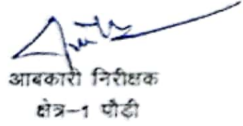 आबकारी निरीक्षक
क्षेत्र-1 पौड़ी